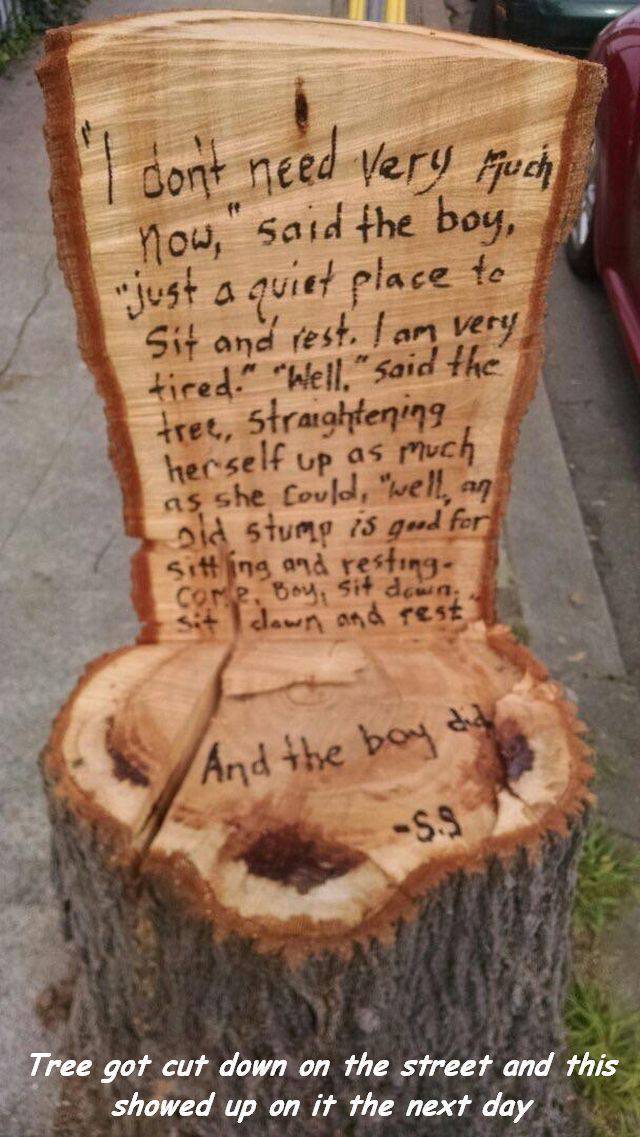 "I don't need very Much
now," said the boy,
"just a quiet place to
sit and rest. I am very
tired." "Well," said the
tree, straightening
herself up as much
as she could, "well, an
old stump is good for
sitting and resting-
come, Boy, sit down.
sit down and rest
And the boy did
-S.S
Tree got cut down on the street and this
showed up on it the next day